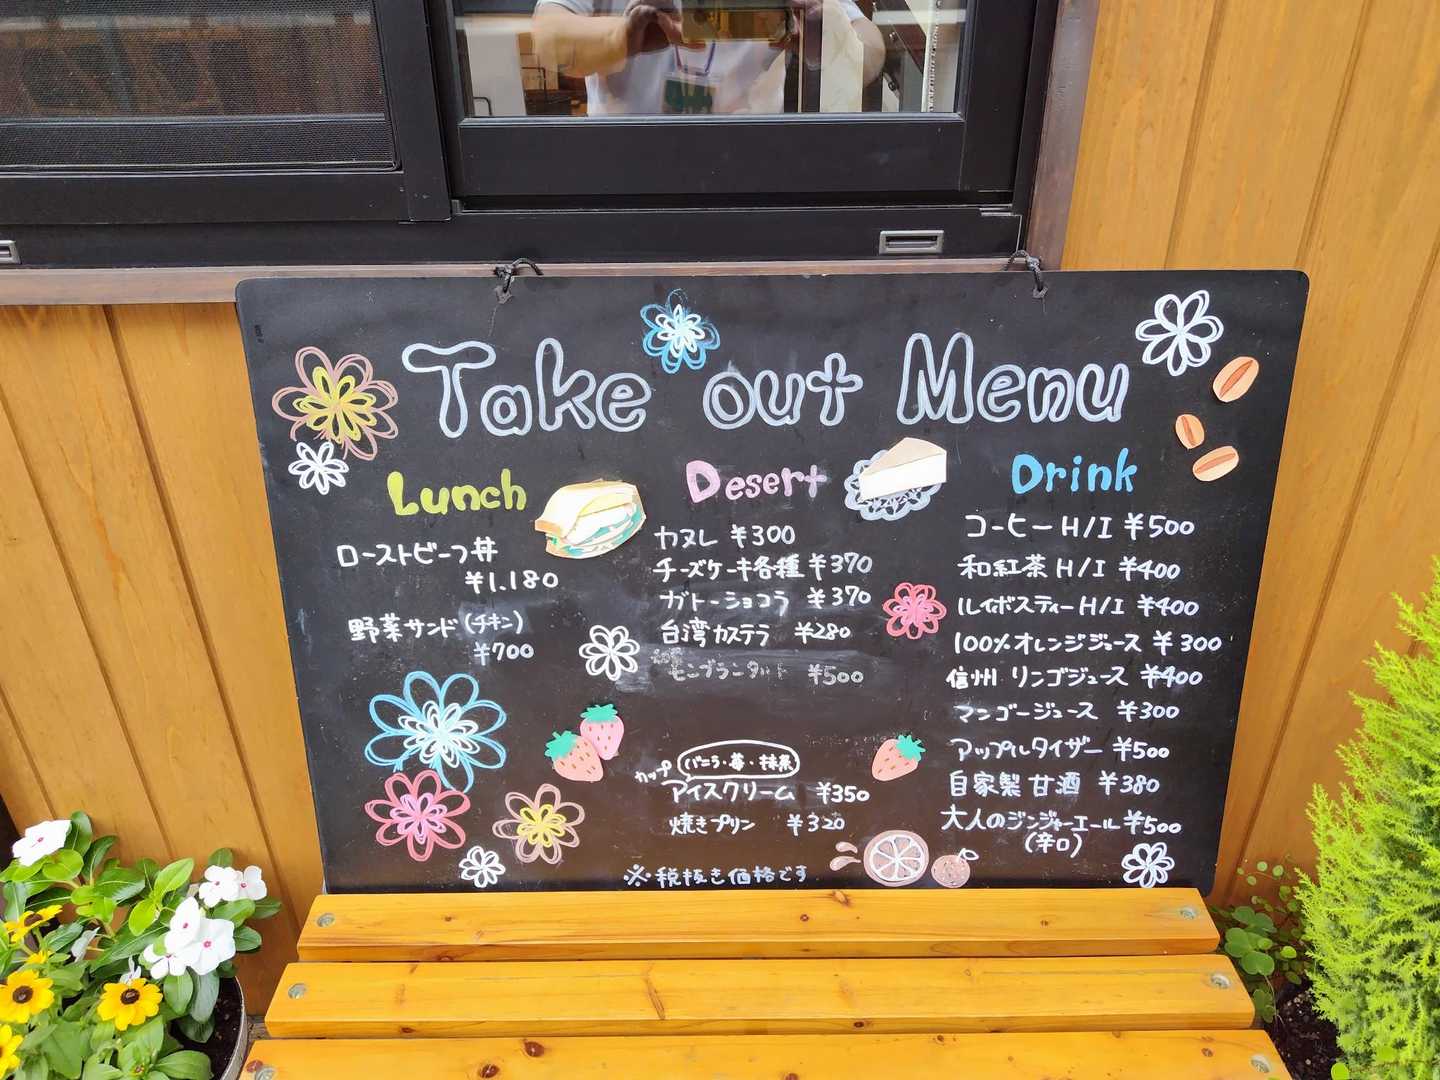 Take out Menu
Lunch
ローストビーフ丼
¥1.180
野菜サンド(チキン)
¥700
Desert
カヌレ ¥300
チーズケーキ各種 ¥370
ガトーショコラ ¥370
台湾カステラ ¥280
モンブランタルト ¥500
バニラ・苺・抹茶
カップ
アイスクリーム ¥350
焼きプリン ¥320
※税抜き価格です
Drink
コーヒーH/I ¥500
和紅茶H/I ¥400
ルイボスティーH/I ¥400
100%オレンジジュース ¥300
信州 リンゴジュース ¥400
マンゴージュース ¥300
アップルタイザー ¥500
自家製甘酒 ¥380
大人のジンジャーエール ¥500
(辛口)